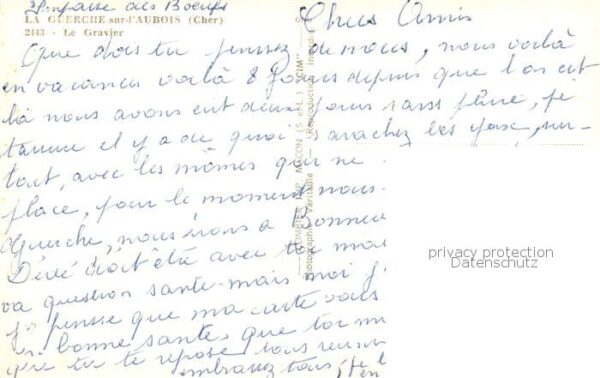 Impasse des Boeufs
LA GUERCHE-sur-l'AUBOIS (Cher)
2443 - Le Gravier
Chers Amis
Que dois tu penser de nous, nous voilà
en vacances voilà 8 jours depuis que l'on est
là nous avons eut deux jours sans pluie,
il y a de quoi s'arachez les yeux, sur-
tout, avec les mômes qui ne
place, pour le moment nous
Guerche, nous irons a
Dédé doit être avec toi moi
va question santé mais moi j'
je pense que ma carte vous
en bonne santé que toi
que tu te repose tous
embrassez tous,
COMBIER IMP. MACON (S.-et-L.) "CIM"
Photographie Véritable - (Reproduction Interdite)
privacy protection
Datenschutz